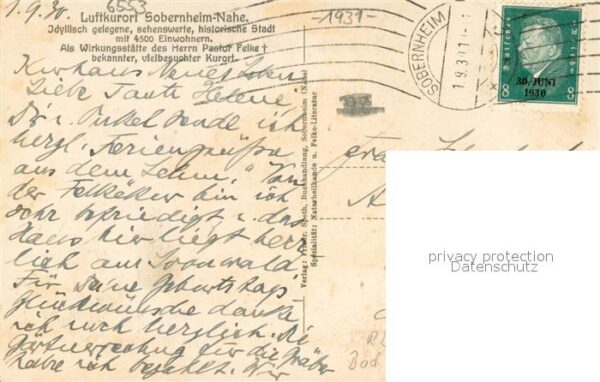 1.9.30
6553
-1931-
Luftkurort Sobernheim-Nahe.
Idyllisch gelegene, sehenswerte, historische Stadt
mit 4500 Einwohnern.
Als Wirkungsstätte des Herrn Pastor Felke †
bekannter, vielbesuchter Kurort.
Kurhaus Neues Leben
Liebe Tante Helene
Dir u. Onkel sende ich
herzl. Feriengrüße
aus dem Lehm. Von
der Felkekur bin ich
sehr befriedigt u. das
Haus hier liegt herr
lich am Soonwald.
Für Deine Geburtstags
glückwünsche danke
ich noch herzlich. Die
Gärtnerrechng für die Gräber
habe ich bezahlt. Wir
Verlag: Friedr. Speth, Buchhandlung, Sobernheim (Nahe)
Spezialität: Naturheilkunde u. Felke-Literatur
SOBERNHEIM
1.9.30.11-1
30. JUNI
1930
8 8
Bad
privacy protection
Datenschutz